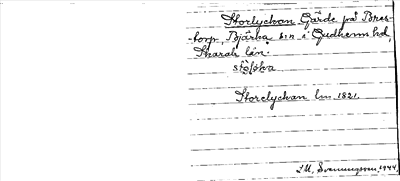 Storlyckan Gärde på Bres-
torp, Bjärka sn i Gudhems hd,
Skarab. län.
Storelyckan lm. 1821.
I.M. Svenungsson 1944